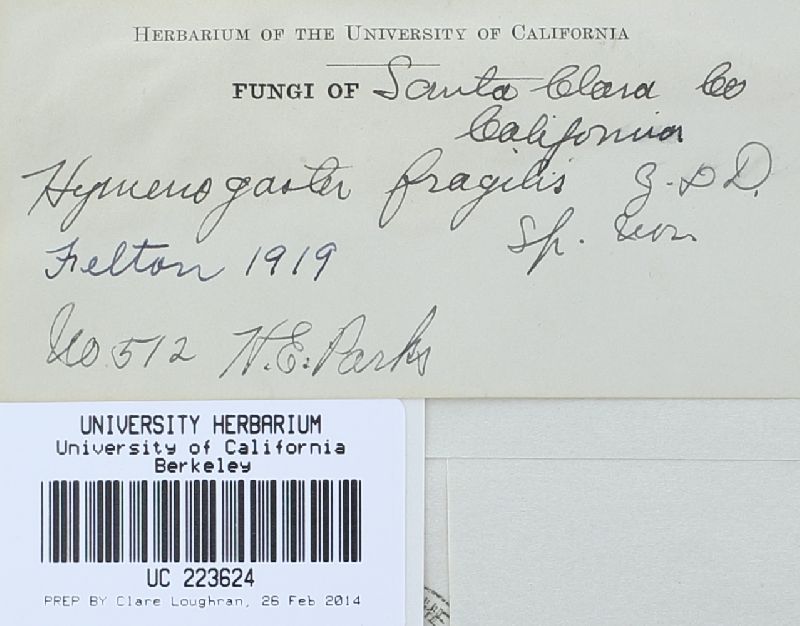 HERBARIUM OF THE UNIVERSITY OF CALIFORNIA
FUNGI OF Santa Clara Co
California
Hymenogaster fragilis Z. & D.
sp. nov.
Felton 1919
No 512 H.E. Parks
UNIVERSITY HERBARIUM
University of California
Berkeley
UC 223624
PREP BY Clare Loughran, 26 Feb 2014